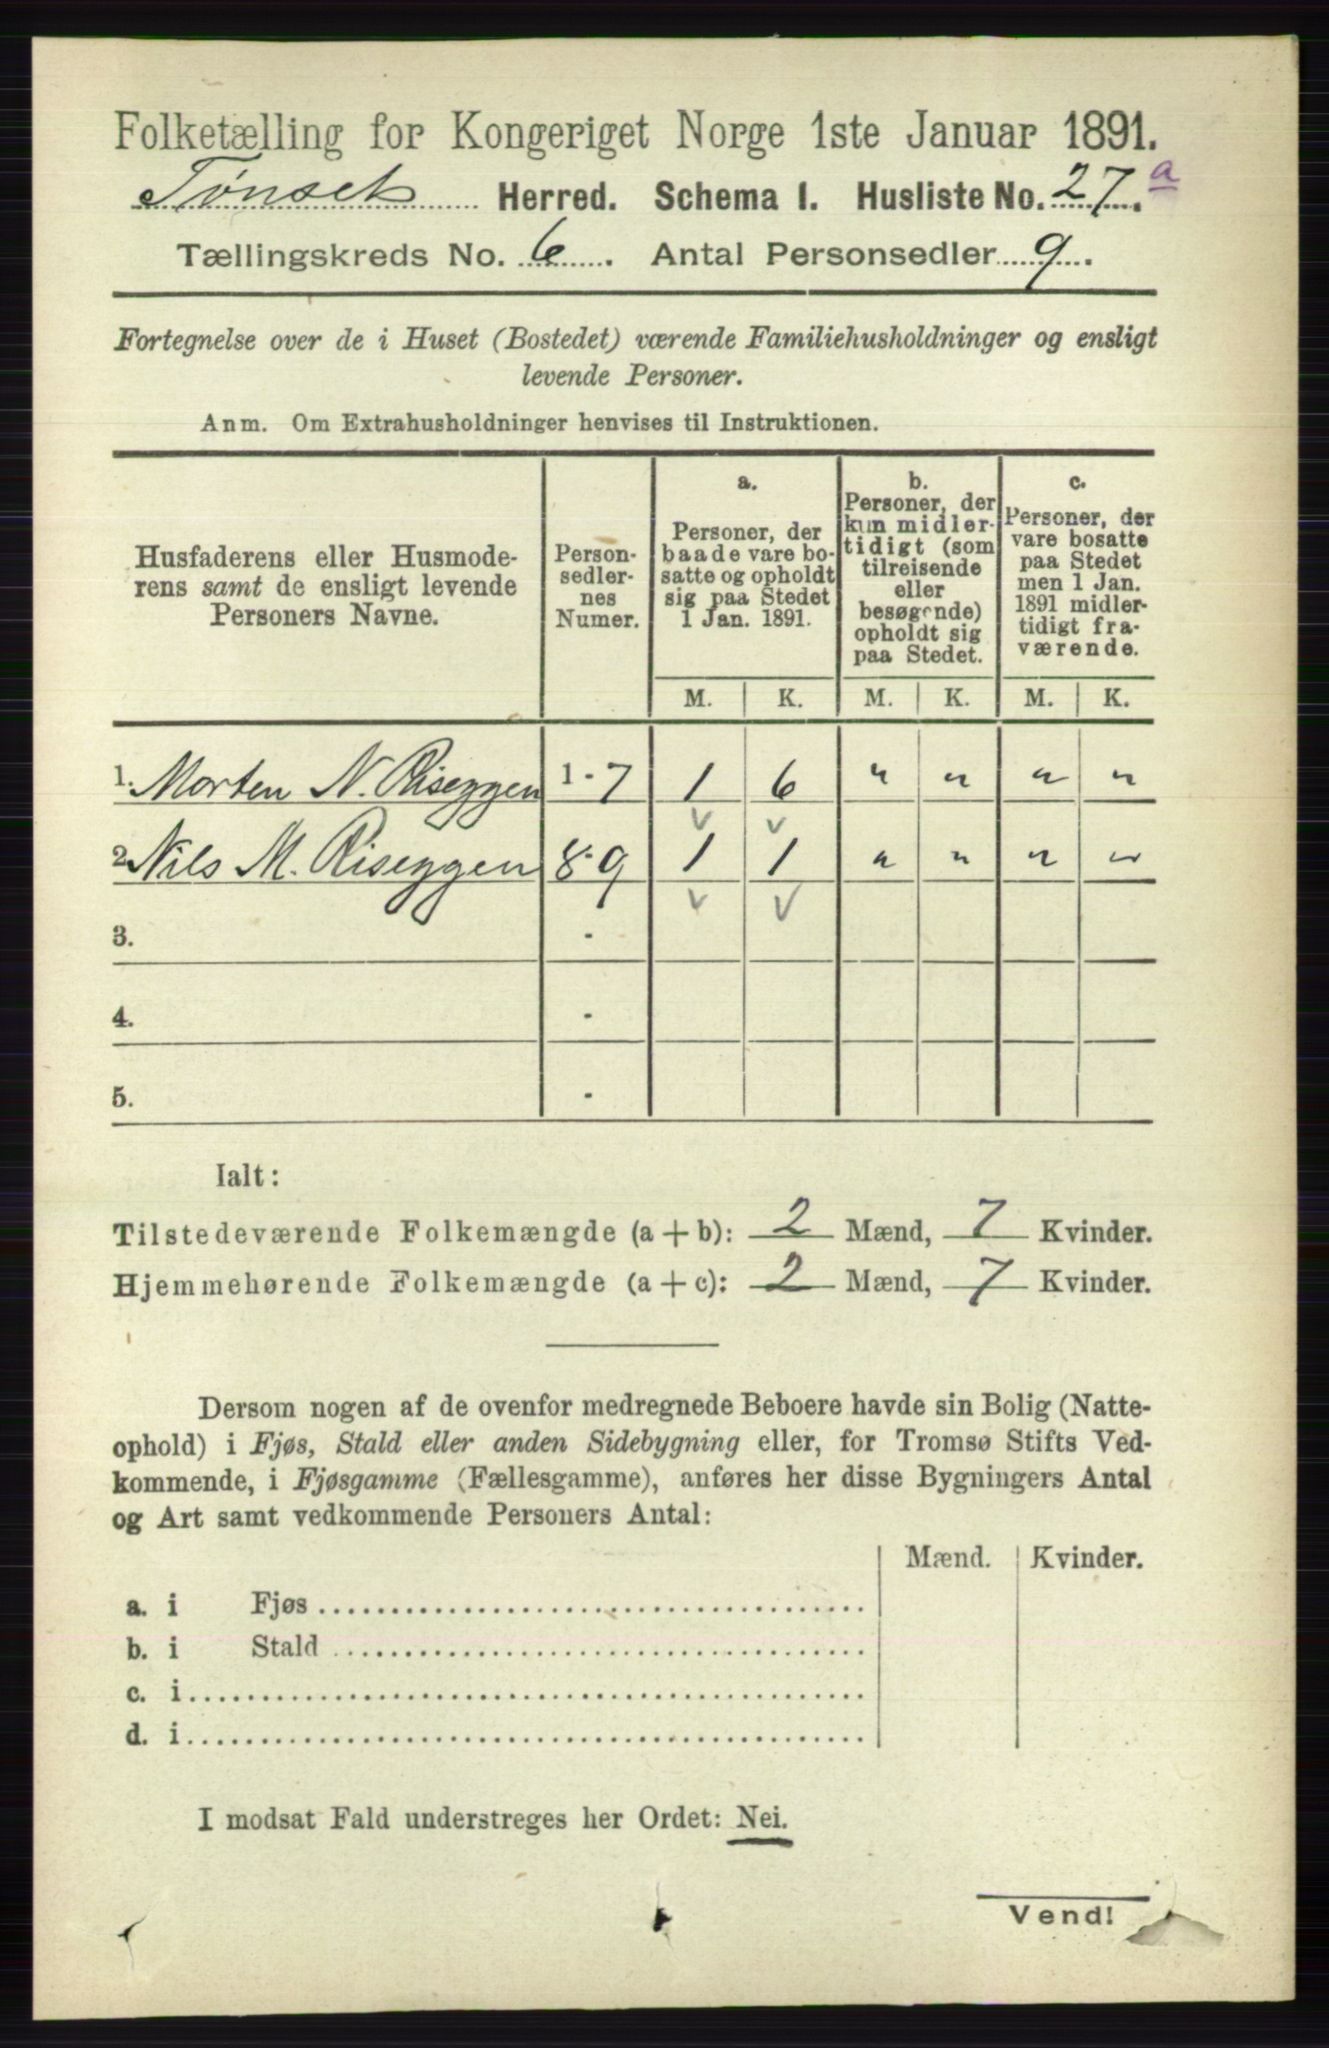 Folketælling for Kongeriget Norge 1ste Januar 1891.
Tønset Herred. Schema I. Husliste No. 27.a
Tællingskreds No. 6. Antal Personsedler 9.
Fortegnelse over de i Huset (Bostedet) værende Familiehusholdninger og ensligt
levende Personer.
Anm. Om Extrahusholdninger henvises til Instruktionen.
Husfaderens eller Husmode-
rens samt de ensligt levende
Personers Navne.
Person-
sedler-
nes
Numer.
a.
Personer, der
baade vare bo-
satte og opholdt
sig paa Stedet
1 Jan. 1891.
b.
Personer, der
kun midler-
tidigt (som
tilreisende
eller
besøgende)
opholdt sig
paa Stedet.
c.
Personer, der
vare bosatte
paa Stedet
men 1 Jan.
1891 midler-
tidigt fra-
værende.
M. K. M. K. M. K.
1. Morten N. Riseggen 1-7 1 6 " " " "
2. Nils M. Riseggen 8-9 1 1 " " " "
3. -
4. -
5. -
Ialt:
Tilstedeværende Folkemængde (a + b): 2 Mænd, 7 Kvinder.
Hjemmehørende Folkemængde (a + c): 2 Mænd, 7 Kvinder.
Dersom nogen af de ovenfor medregnede Beboere havde sin Bolig (Natte-
ophold) i Fjøs, Stald eller anden Sidebygning eller, for Tromsø Stifts Ved-
kommende, i Fjøsgamme (Fællesgamme), anføres her disse Bygningers Antal
og Art samt vedkommende Personers Antal:
Mænd. Kvinder.
a. i Fjøs
b. i Stald
c. i
d. i
I modsat Fald understreges her Ordet: Nei.
Vend!